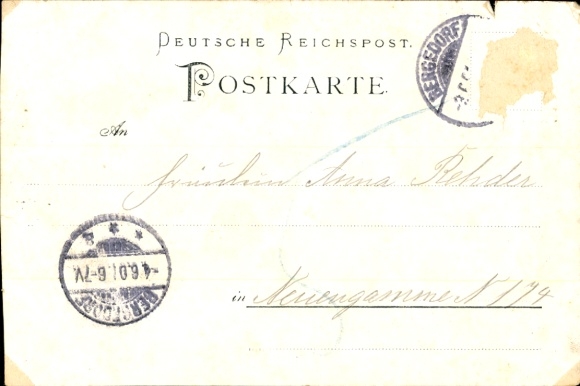 DEUTSCHE REICHSPOST.
POSTKARTE.
BERGEDORF
An
Fräulein Anna Rehder
* * *
-4.6.01.6-7V.
BERGEDORF
in Neuengamme N 174